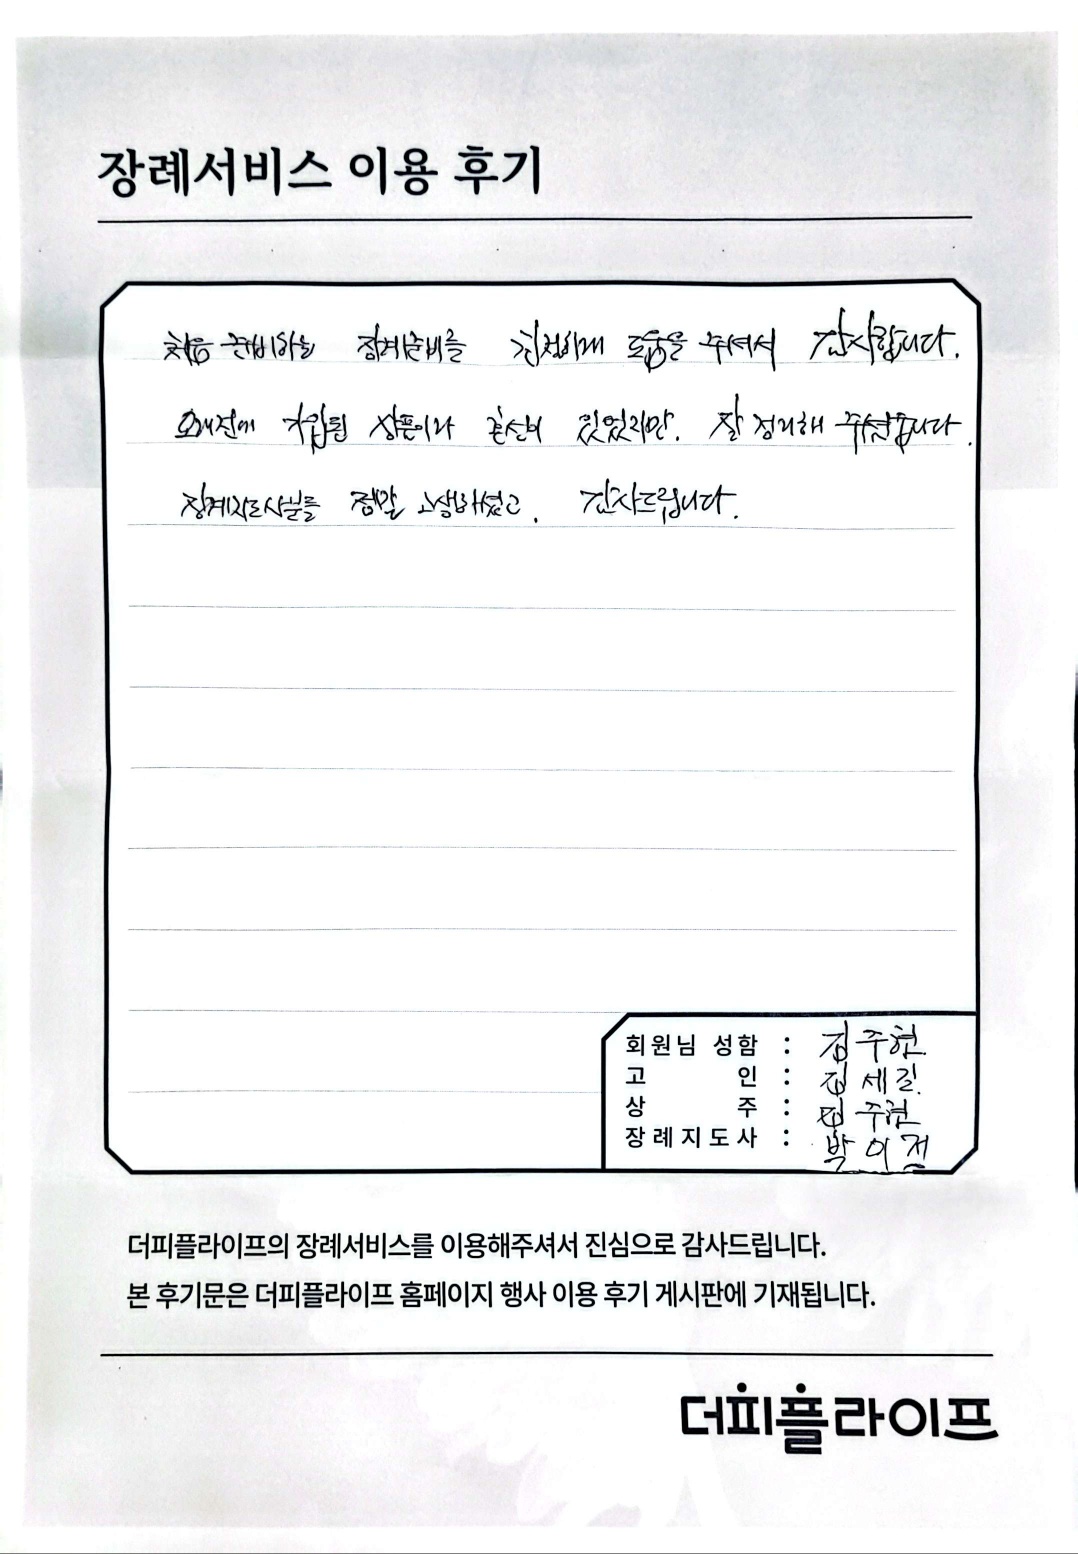 장례서비스 이용 후기
처음 준비하는 장례준비를 친절하게 도움을 주셔서 감사합니다.
오래전에 가입된 상품이라 있었지만. 잘 정리해 주셨습니다.
장례지도사분들 정말 고생하셨고. 감사드립니다.
회원님 성함 : 김주현
고 인 : 김세길
상 주 : 김주현
장례지도사 : 박이정
더피플라이프의 장례서비스를 이용해주셔서 진심으로 감사드립니다.
본 후기문은 더피플라이프 홈페이지 행사 이용 후기 게시판에 기재됩니다.
더피플라이프